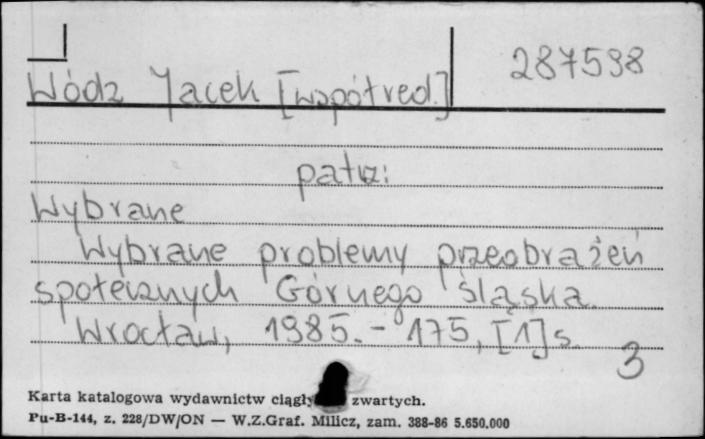 287598
Wódz Jacek [współred.]
patrz:
Wybrane
Wybrane problemy przeobrażeń
społecznych Górnego Śląska.
Wrocław, 1985. - 175, [1] s.
3
Karta katalogowa wydawnictw ciągły zwartych.
Pu-B-144, z. 228/DW/ON — W.Z.Graf. Milicz, zam. 388-86 5.650.000